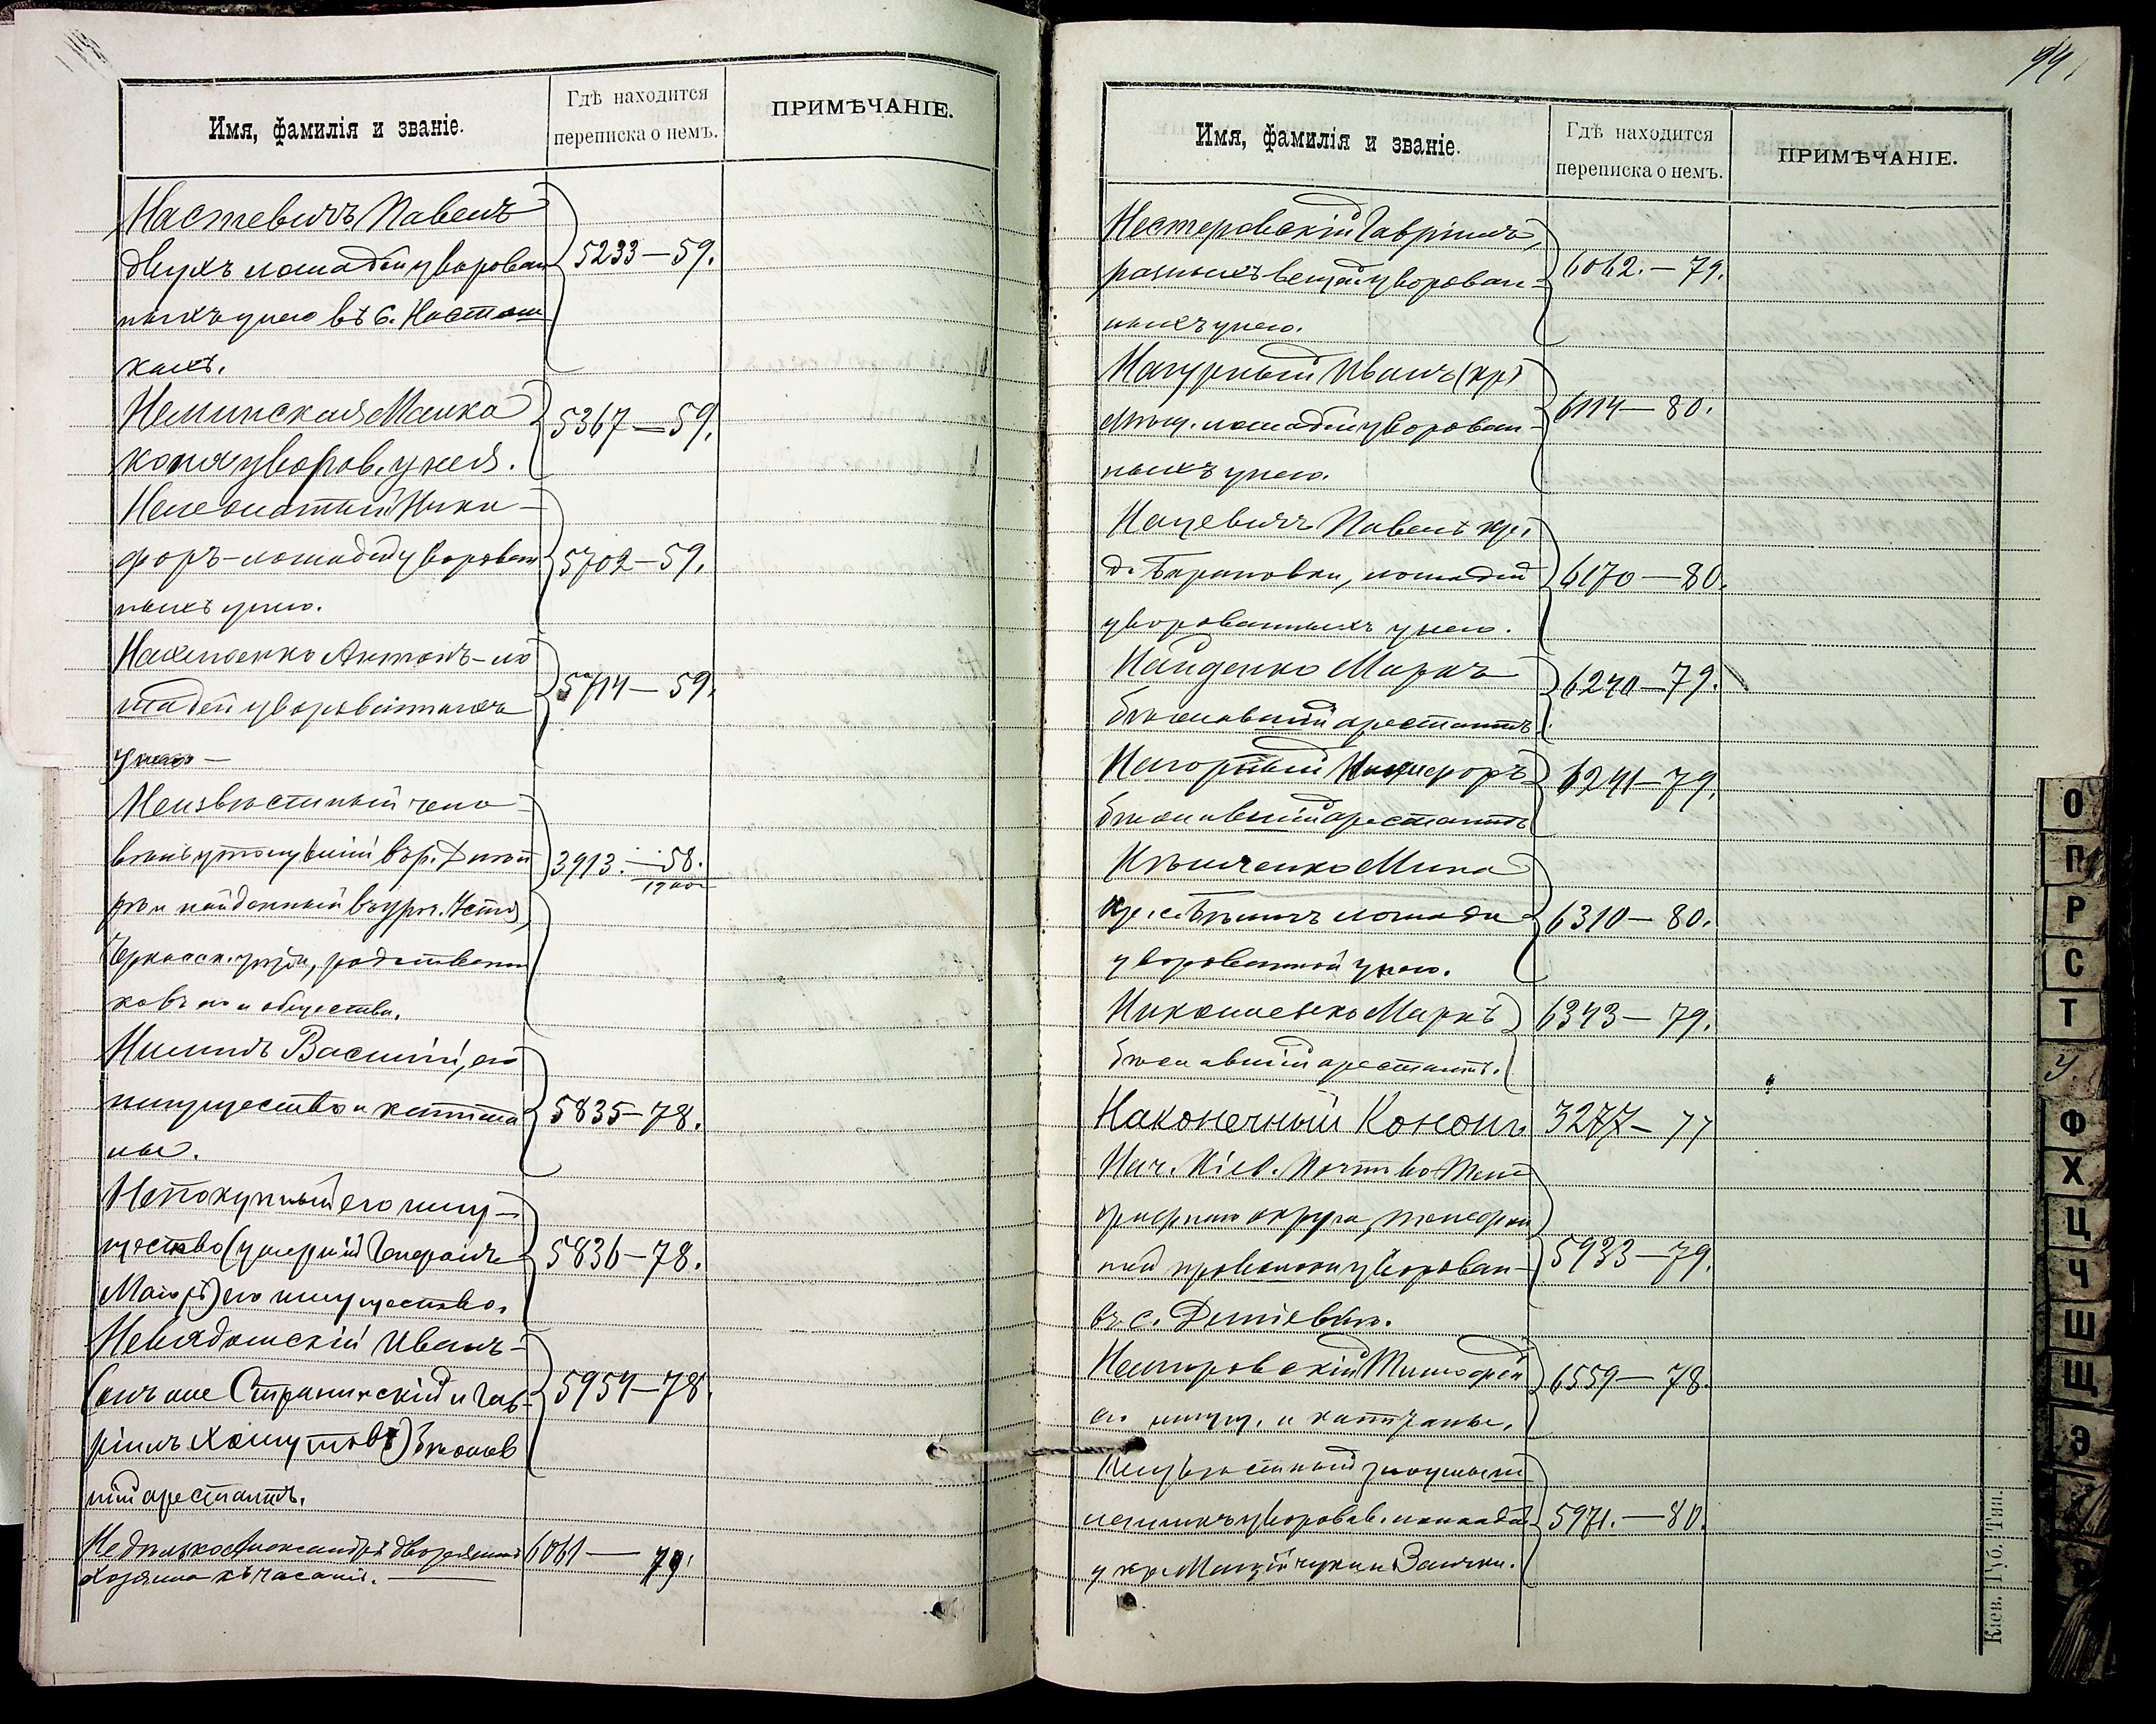 Имя, фамилія и званіе.
Гдѣ находится
переписка о немъ.
ПРИМѢЧАНІЕ.
Настевичъ Павелъ
двухъ лошадей уворован
ныхъ у него въ с. Насташ
кахъ.
5233—59.
Неминская Малка
коня уворов. у нея.
5367—59.
Ники-
форъ—лошадей уворован
ныхъ у него.
5702—59.
Антонъ—ло
шадей уворованныхъ
у него—
5714—59.
Неизвѣстный чело
вѣкъ утонувшій въ р. Днѣп
рѣ и найденный въ уроч. Устя,
Черкасск. уѣзда, родственни
ковъ его и общества.
3913.—58.
Василій, его
имущество и капита
лы.
5835—78.
Непокупный его иму-
щество (умершій Генералъ
Маіоръ) его имущество.
5836—78.
Невядомскій Иванъ-
(онъ же Страпинскій и Гав-
ріилъ Хомутовъ) бѣжав
шій арестантъ.
5954—78.
Недѣлько Александръ дворянинъ
6061— 79.
94.
Имя, фамилія и званіе.
Гдѣ находится
переписка о немъ.
ПРИМѢЧАНІЕ.
Нестеровскій Гавріилъ,
разныхъ вещей уворован-
ныхъ у него.
6062.—79.
Нагурный Иванъ (кр.)
лошадей уворован-
ныхъ у него.
6114—80.
Нацевичъ Павелъ кр.
д. Барановки, лошадей
уворованныхъ у него.
6170—80.
Найденко Маркъ
бѣжавшій арестантъ.
6240—79.
Нагорный Никифоръ
бѣжавшій арестантъ
6241—79.
Мина
кр. с. лошади
уворованной у него.
6310—80.
Николаенко Маркъ
бѣжавшій арестантъ.
6343—79.
Наконечный Кононъ
3277—77
Нач. Кіев. Почтово-Теле
графнаго округа, телефон
ной проволоки уворован-
въ с. Деміевкѣ.
5933—79.
Немировскій Тимофей
его имущ. и капиталы.
6559—78.
Неизвѣстный злоумыш
ленникъ уворовав. лошадей
у кр. и Заички.
5971.—80.
О
П
Р
С
Т
У
Ф
Х
Ц
Ч
Ш
Щ
Э
Кіев. Губ. Тип.